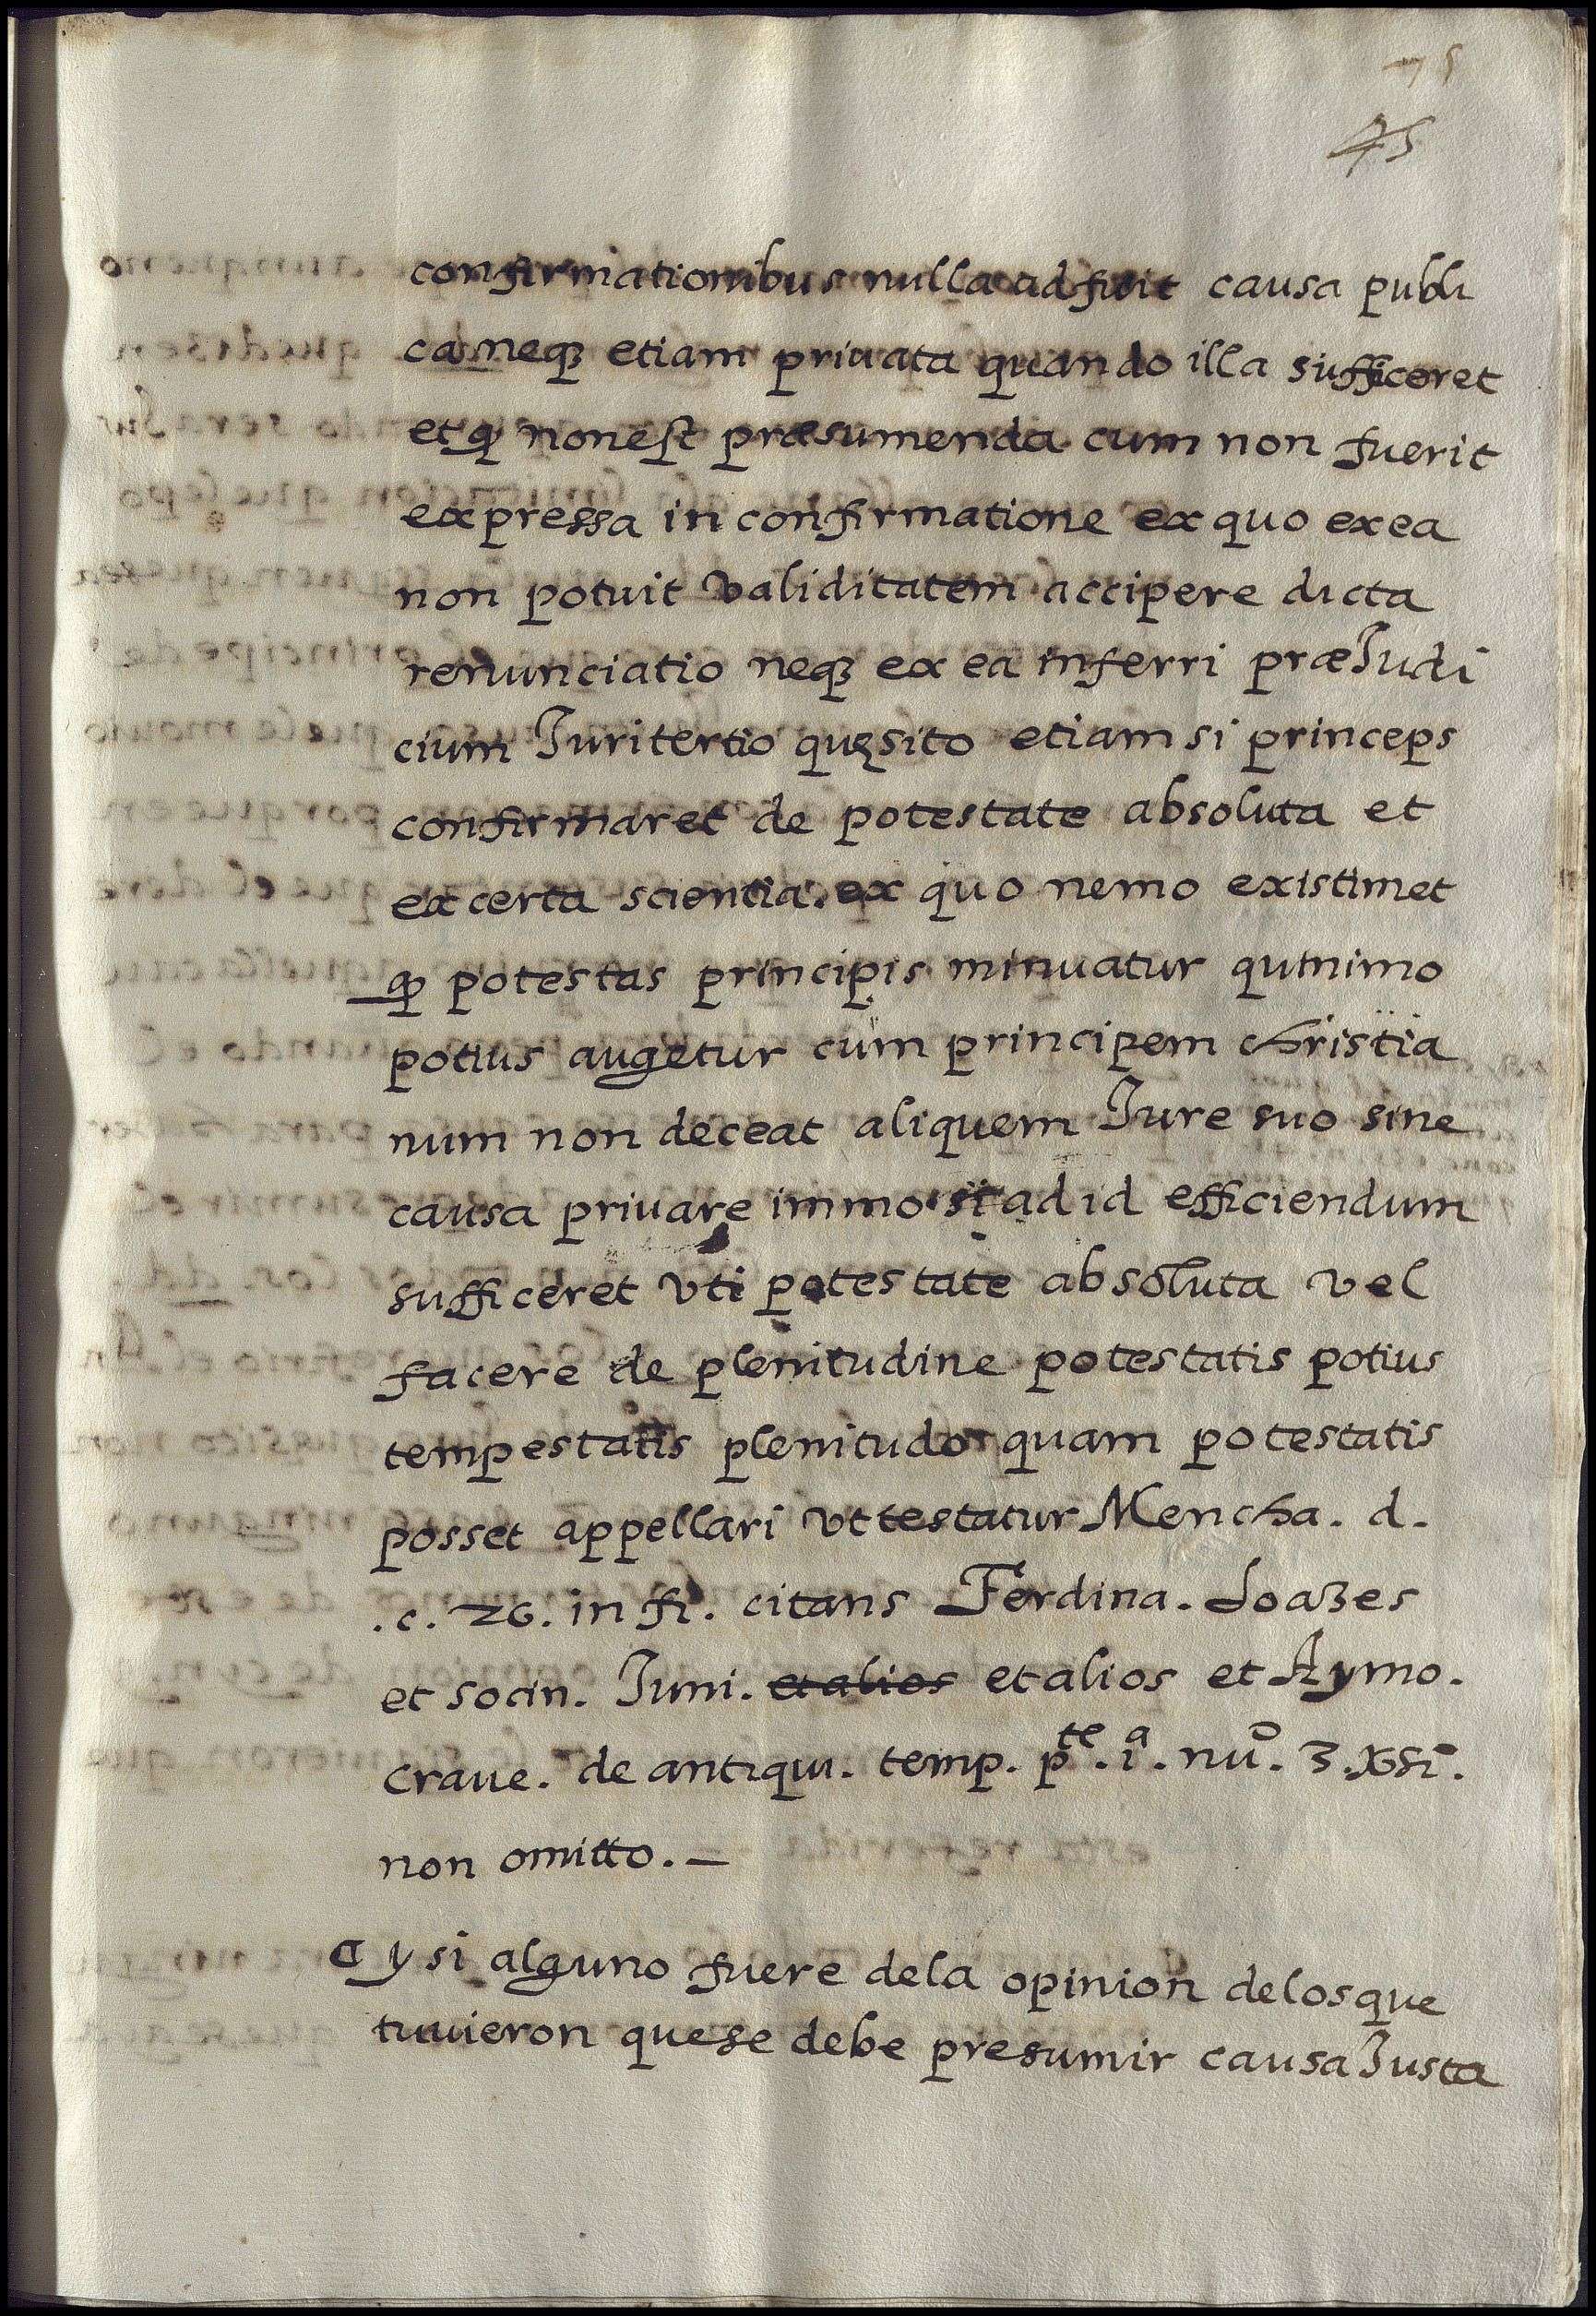 75
75
confirmationibus nulla adfuit causa publi
ca neqꝫ etiam priuata quando illa sufficeret
et ꝙ non est præsumenda cum non fuerit
expressa in confirmatione ex quo ex ea
non potuit validitatem accipere dicta
renunciatio neqꝫ ex ea inferri præIudi
cium Iuri tertio quęsito etiam si princeps
confirmaret de potestate absoluta et
ex certa scientia. ex quo nemo existimet
ꝙ potestas principis minuatur quinimo
potius augetur cum principem christia
num non deceat aliquem Iure suo sine
causa priuare immo si ad id efficiendum
sufficeret vti potestate absoluta vel
facere de plenitudine potestatis potius
tempestatis plenitudo quam potestatis
posset appellari vt testatur Mencha. d.
.c. 26. in fi. citans Ferdina. Loazes
et socin. Iuni. et alios et alios et Aymo.
craue. de antiqui. temp. pte. ia. nuº. 3. .
non omitto. —
y si alguno fuere dela opinion delos que
tuuieron que se debe presumir causa Iusta